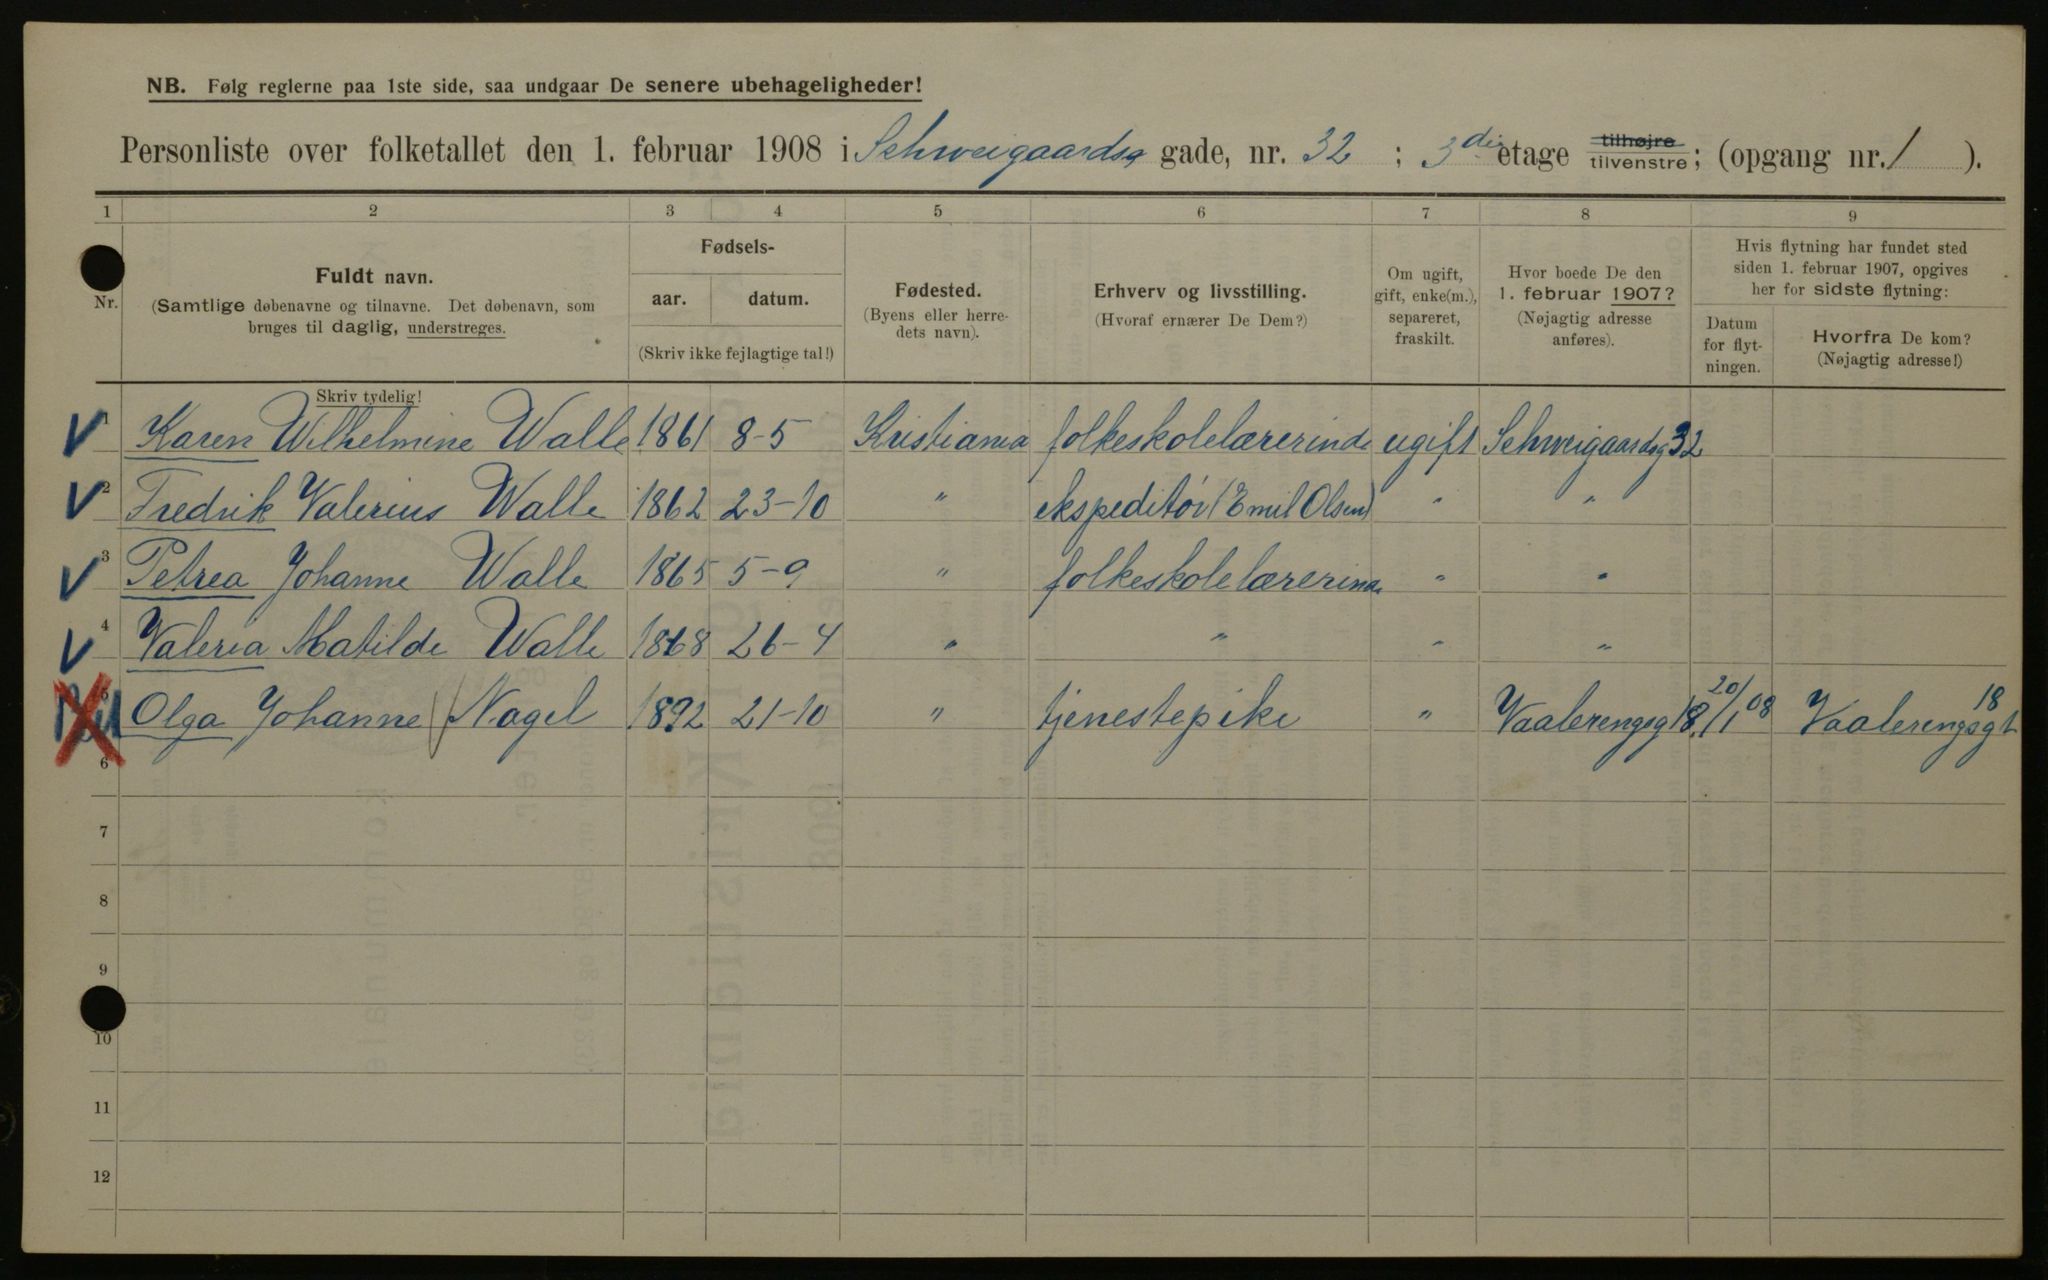 NB. Følg reglerne paa 1ste side, saa undgaar De senere ubehageligheder!
Personliste over folketallet den 1. februar 1908 i Schweigaardsg gade, nr. 32 ; 3die etage tilhøjre tilvenstre; (opgang nr. 1 ).
1 2 3 4 5 6 7 8 9
Nr.
Fuldt navn.
(Samtlige døbenavne og tilnavne. Det døbenavn, som
bruges til daglig, understreges.
Skriv tydelig!
Fødsels-
aar. datum.
(Skriv ikke fejlagtige tal!)
Fødested.
(Byens eller herre-
dets navn).
Erhverv og livsstilling.
(Hvoraf ernærer De Dem?)
Om ugift,
gift, enke(m.),
separeret,
fraskilt.
Hvor boede De den
1. februar 1907?
(Nøjagtig adresse
anføres).
Hvis flytning har fundet sted
siden 1. februar 1907, opgives
her for sidste flytning:
Datum
for flyt-
ningen.
Hvorfra De kom?
(Nøjagtig adresse!)
1 Karen Wilhelmine Walle 1861 8-5 Kristiania folkeskolelærerinde ugift Schweigaardsg 32
2 Fredrik Valerius Walle 1862 23-10 " ekspeditør (Emil Olsen) " "
3 Petrea Johanne Walle 1865 5-9 " folkeskolelærerinde " "
4 Valeria Matilde Walle 1868 26-4 " " " "
5 Olga Johanne Nagel 1892 21-10 " tjenestepike " Vaalerengsg 18 20/1 08 Vaalerengsgt 18
6
7
8
9
10
11
12